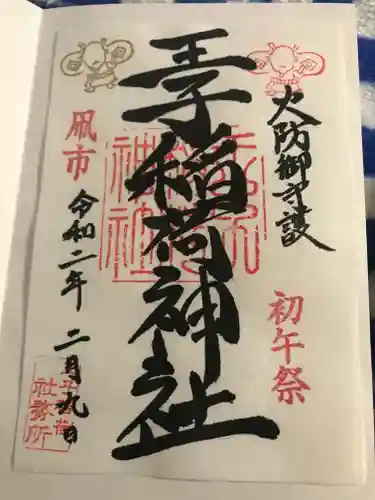 火防御守護
初午祭
王子稲荷神社
凧市
令和二年 二月九日
王子稲荷神社
社務所